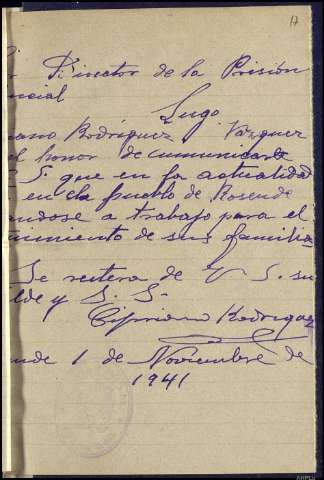 17
Director de la Prisión
incial
Lugo
iano Rodríguez Vázquez
el honor de comunicarle
S. que en la actualidad
en el pueblo de Rosende
andose a trabajo para el
nimiento de sus familia
Se reitera de V S. su
lde y S. S.
Cipriano Rodriguez
ende 1 de Noviembre de
1941